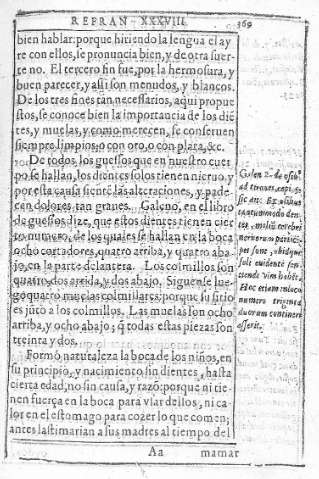 REFRAN XXXVIII. 369
bien hablar: porque hiriendo la lengua el ay
re con ellos, se pronuncia bien, y de otra suer-
te no. El tercero fin fue, por la hermosura, y
buen parecer, y assi son menudos, y blancos.
De los tres fines tan necessarios, aqui propue
stos, se conoce bien la importancia de los diē
tes, y muelas, y como merecen, se conseruen
siempre limpios, o con oro, o con plata, &c.
De todos los guessos que en nuestro cuer
po se hallan, los dientes solos tienen nieruo, y
por esta causa siente las alteraciones, y pade-
cen dolores tan granes. Galeno, en el libro
de guessos dize, que estos dientes tienen cier
to numero, de los quales se hallan en la boca
ocho cortadores, quatro arriba, y quatro aba-
jo, en la parte delantera. Los colmillos son
quatro, dos arriba, y dos abajo. Siguense lue-
go quatro muelas colmillares: porque su sitio
es jūto a los colmillos. Las muelas son ocho
arriba, y ocho abajo; q̄ todas estas piezas son
treinta y dos.
Formó naturaleza la boca de los niños, en
su principio, y nacimiento, sin dientes, hasta
cierta edad, no sin causa, y razō: porque ni tie-
nen fuerça en la boca para vsar dellos, ni ca-
lor en el estomago para cozer lo que comen;
antes lastimarian a sus madres al tiempo del
Aa mamar
Galen 2. de ossib.
ad tyrones, capi. 5.
sic an: Ex ossibus
tantummodo den-
tes, mollium cerebri
neruorum partici-
pes sunt, vbi dque
soli euidenter sen-
tiendi vim habēt.
Hoc etiam in loco
numero triginta
duorum contineri
asserit.